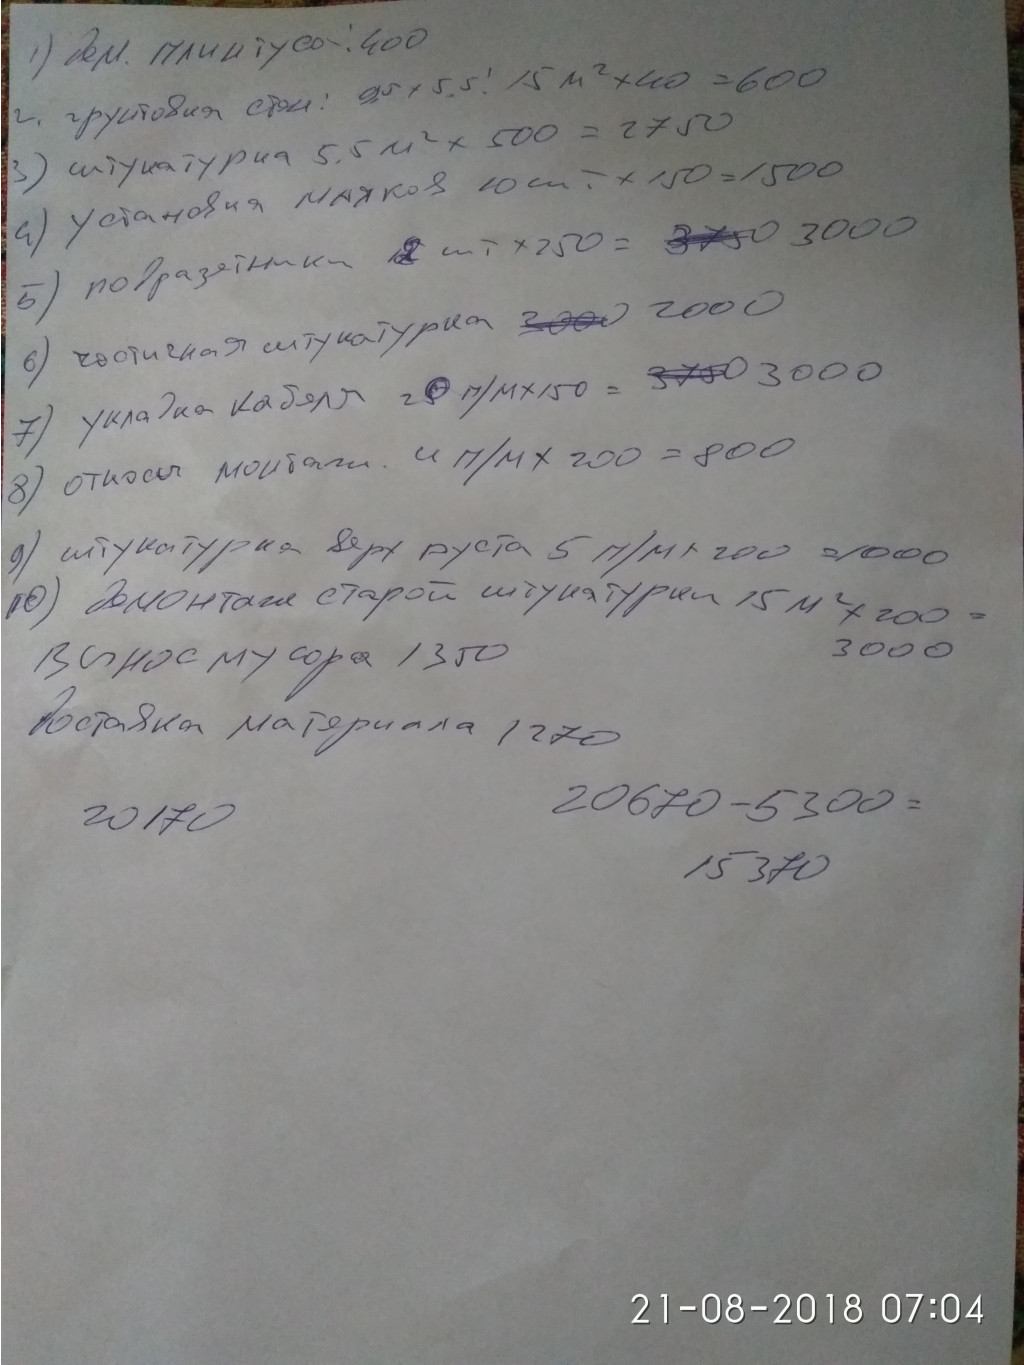 1) дем. плинтусо-: 400
2. грунтовка стен: 9,5 × 5.5: 15 м² × 40 = 600
3) штукатурка 5.5 м² × 500 = 2750
4) установка маяков 10 шт × 150 = 1500
5) подразетники 12 шт × 250 = 3750 3000
6) частичная штукатурка 3000 2000
7) укладка кабеля 20 п/м × 150 = 3750 3000
8) откосы монтаж. 4 п/м × 200 = 800
9) штукатурка верх руста 5 п/м × 200 = 1000
10) Демонтаж старой штукатурки 15 м² × 200 =
3000
Вынос мусора 1350
Доставка материала 1270
20170
20670 – 5300 =
15370
21-08-2018 07:04